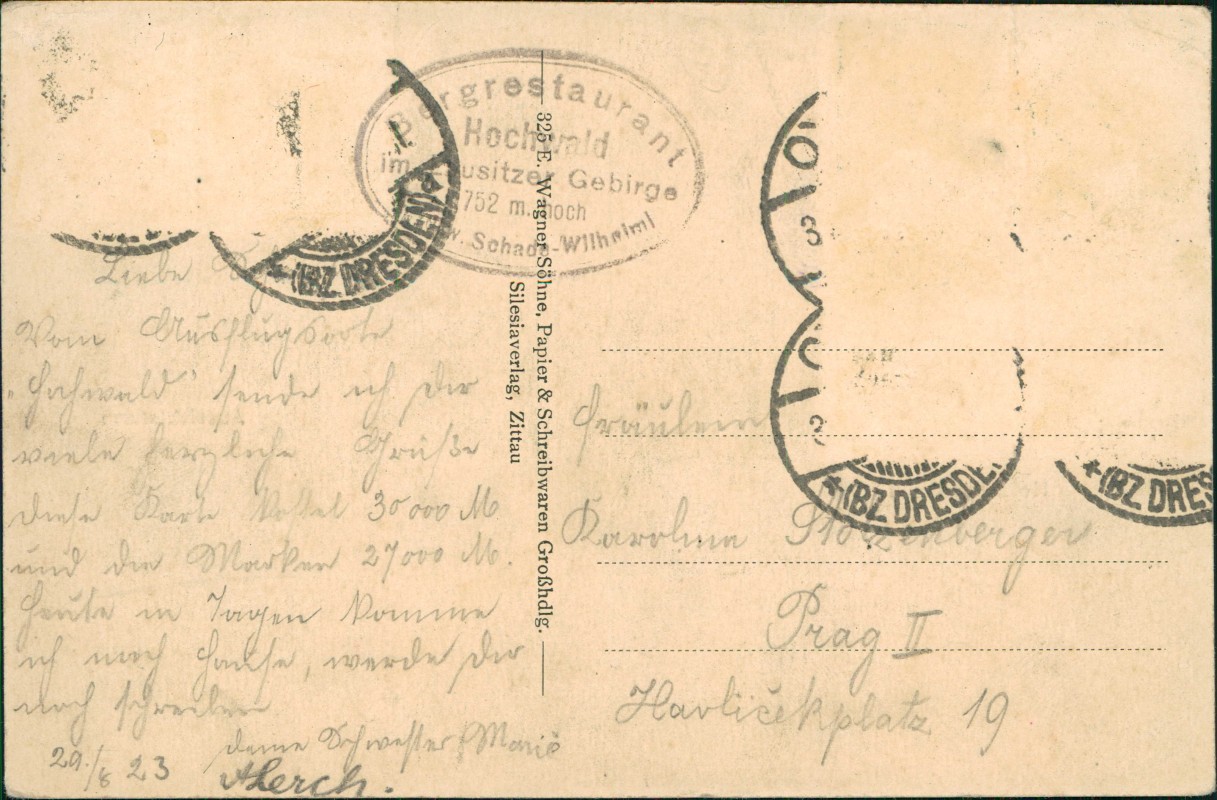 Bergrestaurant
Hochwald
im Lausitzer Gebirge
752 m. hoch
Schade-Wilhelm
(BZ DRESDEN)
325 E. Wagner Söhne, Papier & Schreibwaren Großhdlg.
Silesiaverlag, Zittau
Liebe
Vom Ausflugsorte
"Hochwald" sende ich dir
viele herzliche Grüße
diese Karte kostet 30000 M
und die Marken 27000 M.
Heute in Tagen komme
ich nach Hause, werde dir
noch schreiben
deine Schwester Marie
29./8 23
Lerch.
(BZ DRESDEN
(BZ DRES
Fräulein
Karolina
Prag II
Havličekplatz 19